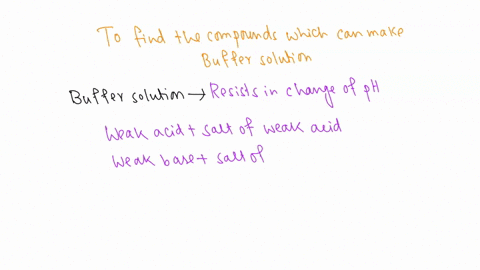 To find the compounds which can make
Buffer solution
Buffer solution → Resists in change of pH
Weak acid + salt of weak acid
Weak base + salt of